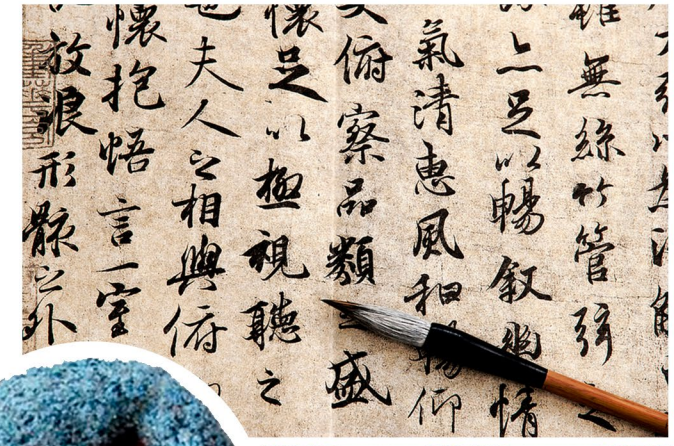 雖無絲竹管弦之
亦足以暢敘幽情
氣清惠風和暢仰
俯察品類之盛
懷足以極視聽之
夫人之相與俯
懷抱悟言一室
放浪形骸之外